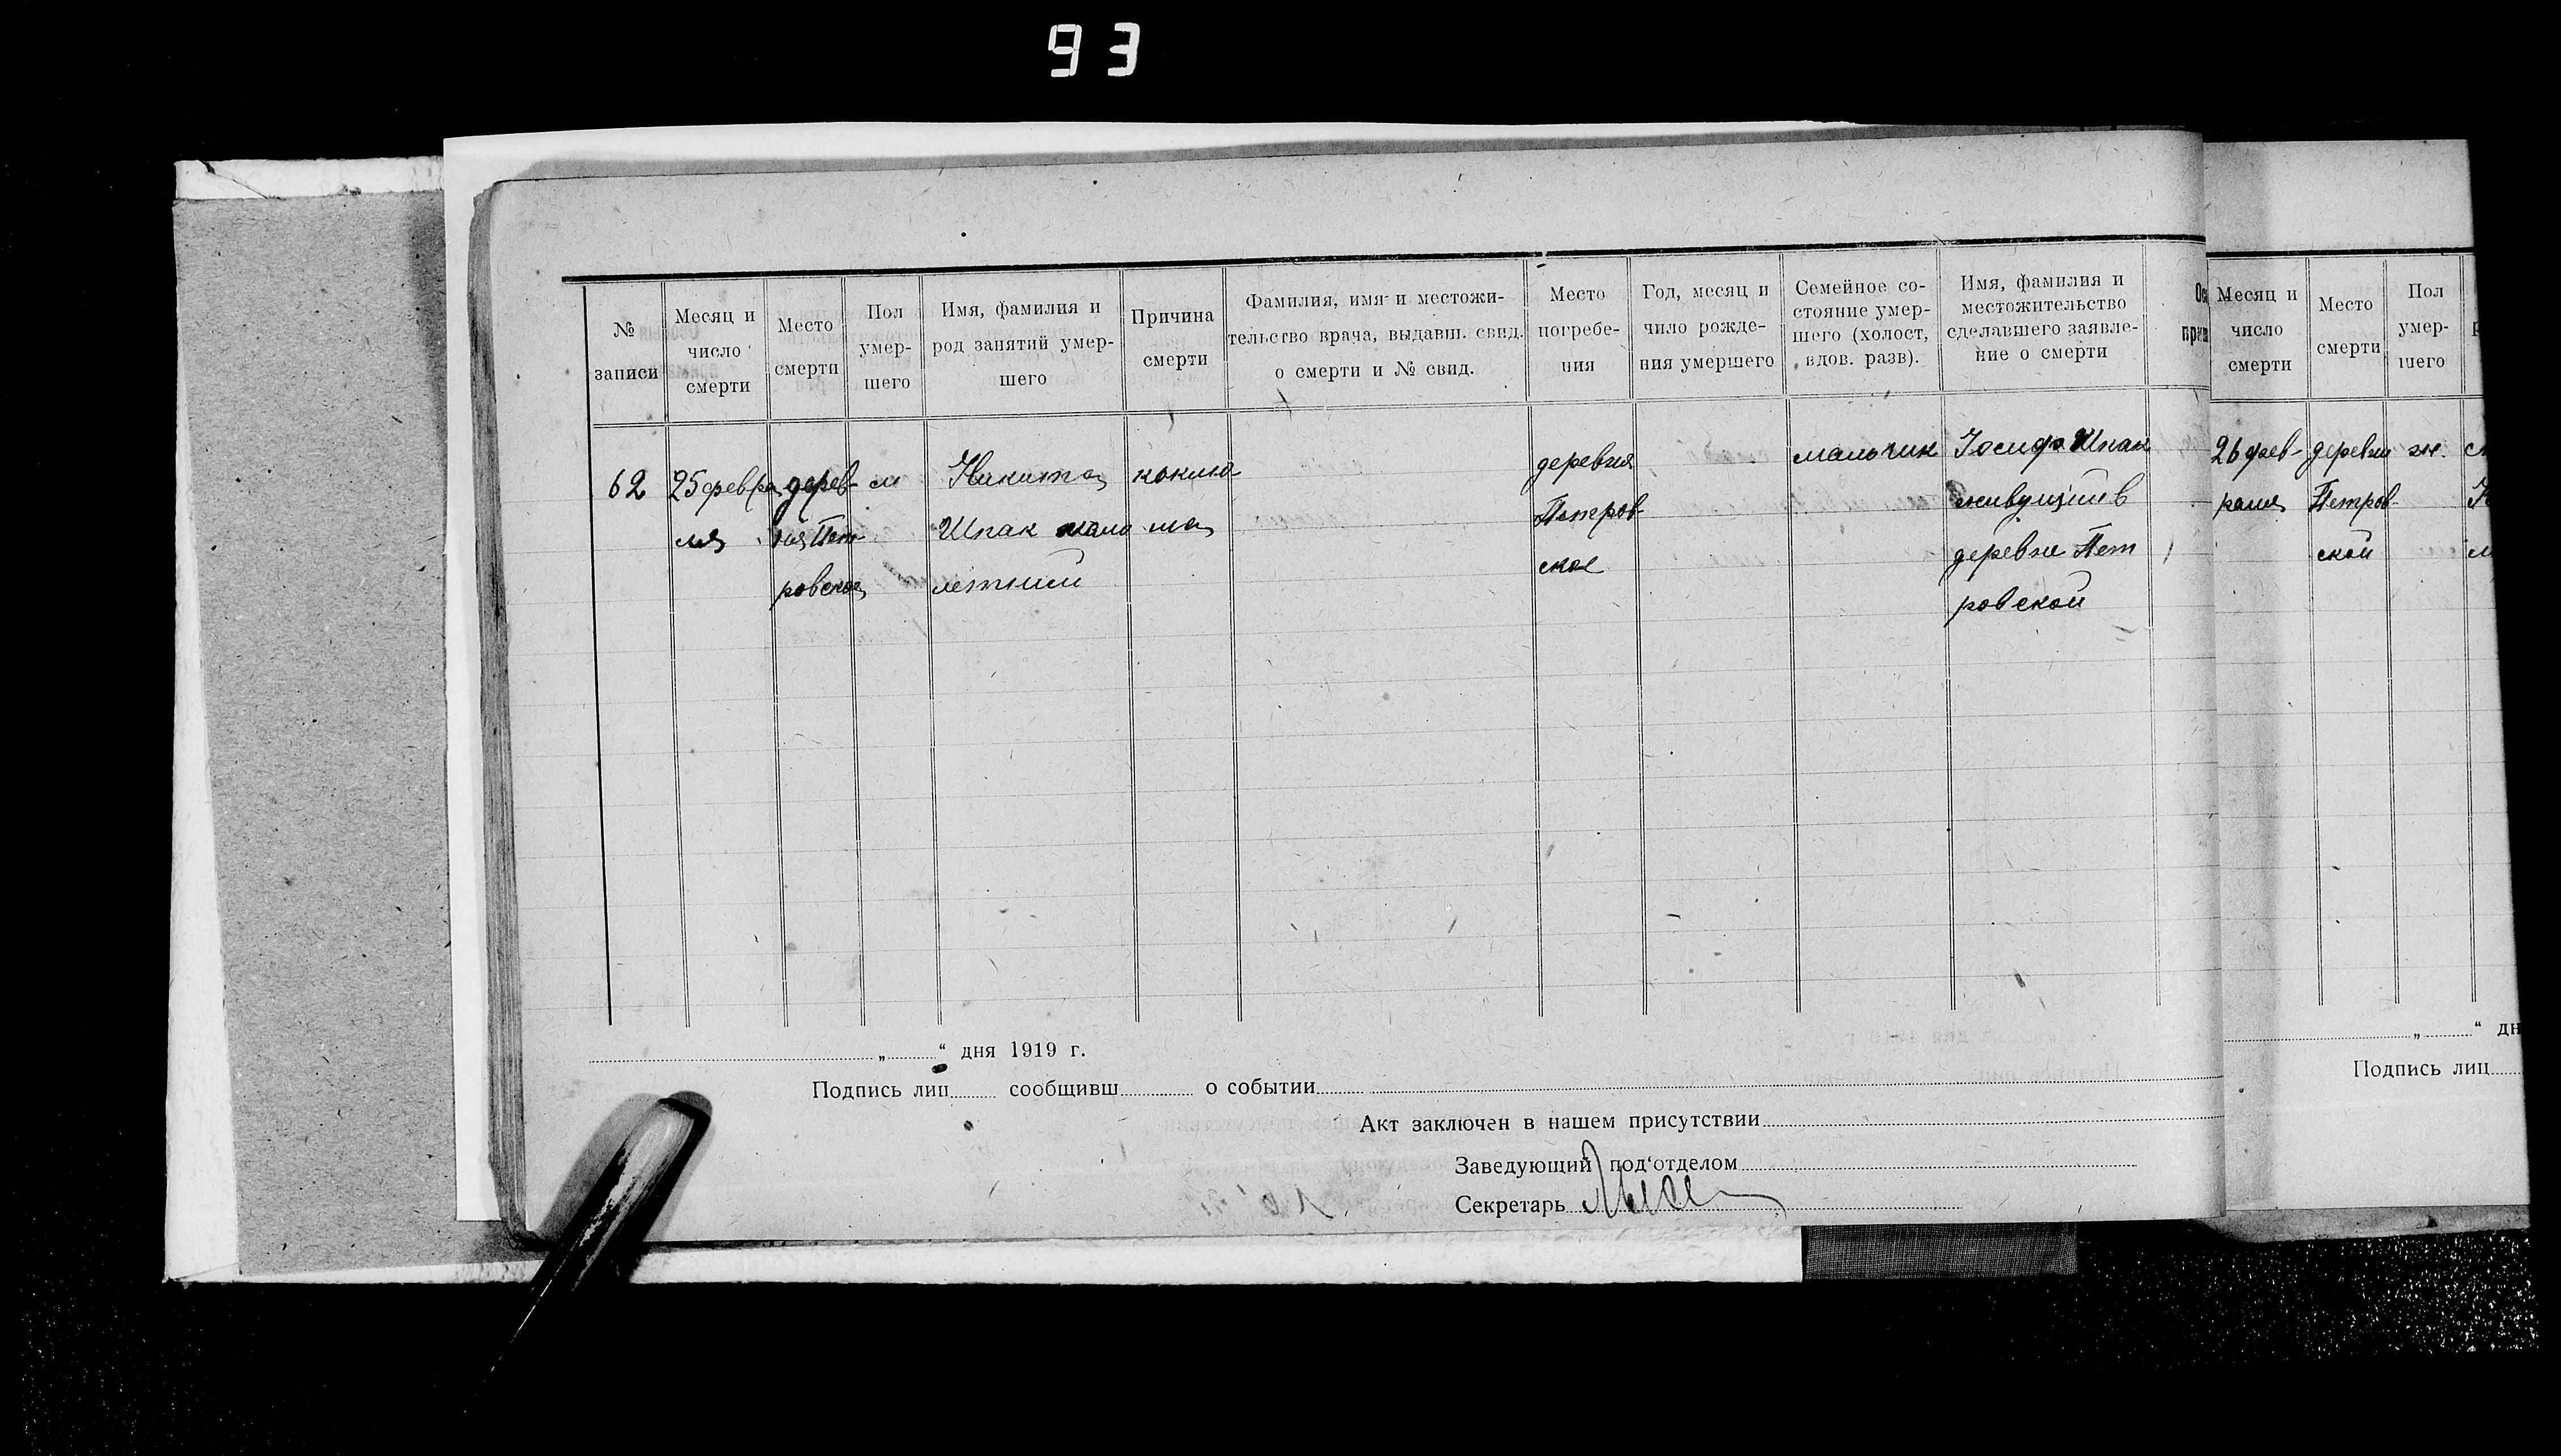 93
№ записи
Месяц и число смерти
Место смерти
Пол умер-шего
Имя, фамилия и род занятий умер-шего
Причина смерти
Фамилия, имя и местожи-тельство врача, выдавш. свид. о смерти и № свид.
Место погребе-ния
Год, месяц и чило рожде-ния умершего
Семейное со-стояние умер-шего (холост, вдов. разв).
Имя, фамилия и местожительство сделавшего заявле-ние о смерти
62
25 февра
ля
дерев-
ня Пет
ровская
м
Никита
Шпак мало
летний
коклю
ша
деревня
Петров-
ское
мальчик
Iосиф Шпак
живущий в
деревне Пет
ровской
„ “ дня 1919 г.
Подпись лиц сообщивш о событии
Акт заключен в нашем присутствии
Заведующий под‘отделом
Секретарь
Месяц и число смерти
Место смерти
Пол умер-шего
26 фев-
раля
деревни
Петров-
ской
ж.
„ “ дн
Подпись лиц